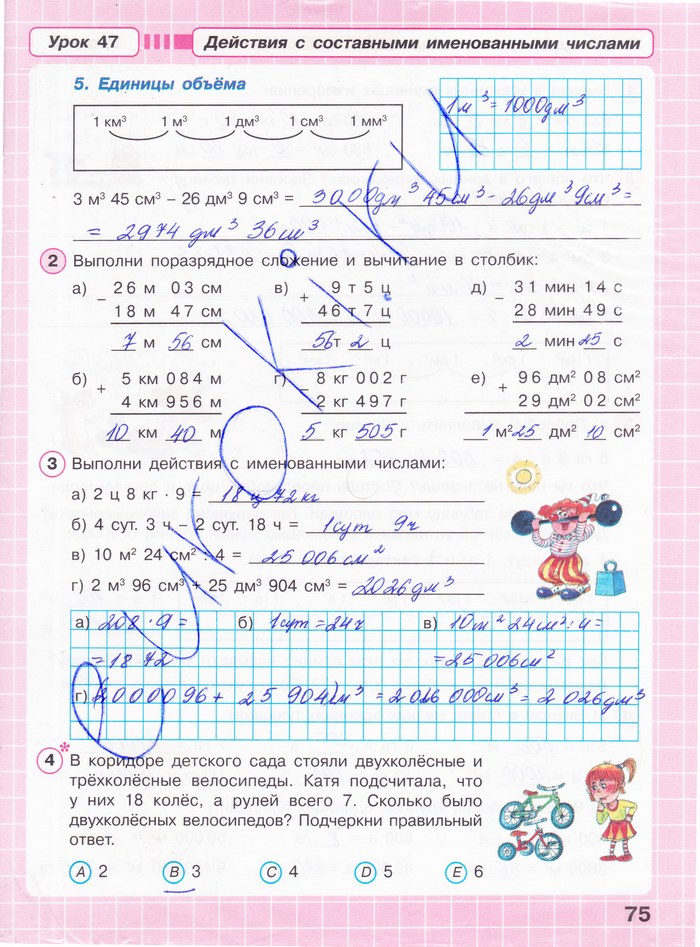 Урок 47
Действия с составными именованными числами
5. Единицы объёма
1 км³ 1 м³ 1 дм³ 1 см³ 1 мм³
1 м³ = 1000 дм³
3 м³ 45 см³ – 26 дм³ 9 см³ = 3000 дм³ 45 см³ - 26 дм³ 9 см³ =
= 2974 дм³ 36 см³
2 Выполни поразрядное сложение и вычитание в столбик:
а) – 26 м 03 см
18 м 47 см
7 м 56 см
в) + 9 т 5 ц
46 т 7 ц
56 т 2 ц
д) – 31 мин 14 с
28 мин 49 с
2 мин 25 с
б) + 5 км 084 м
4 км 956 м
10 км 40 м
г) – 8 кг 002 г
2 кг 497 г
5 кг 505 г
е) + 96 дм² 08 см²
29 дм² 02 см²
1 м² 25 дм² 10 см²
3 Выполни действия с именованными числами:
а) 2 ц 8 кг · 9 = 18 ц 72 кг
б) 4 сут. 3 ч – 2 сут. 18 ч = 1 сут 9 ч
в) 10 м² 24 см² : 4 = 25 006 см²
г) 2 м³ 96 см³ + 25 дм³ 904 см³ = 2026 дм³
а) 208 · 9 = б) 1 сут = 24 ч в) 10 м² 24 см² : 4 =
= 1872 = 25 006 см²
г) (2000096 + 25 904) см³ = 2026 000 см³ = 2 026 дм³
4* В коридоре детского сада стояли двухколёсные и
трёхколёсные велосипеды. Катя подсчитала, что
у них 18 колёс, а рулей всего 7. Сколько было
двухколёсных велосипедов? Подчеркни правильный
ответ.
A 2 B 3 C 4 D 5 E 6
75